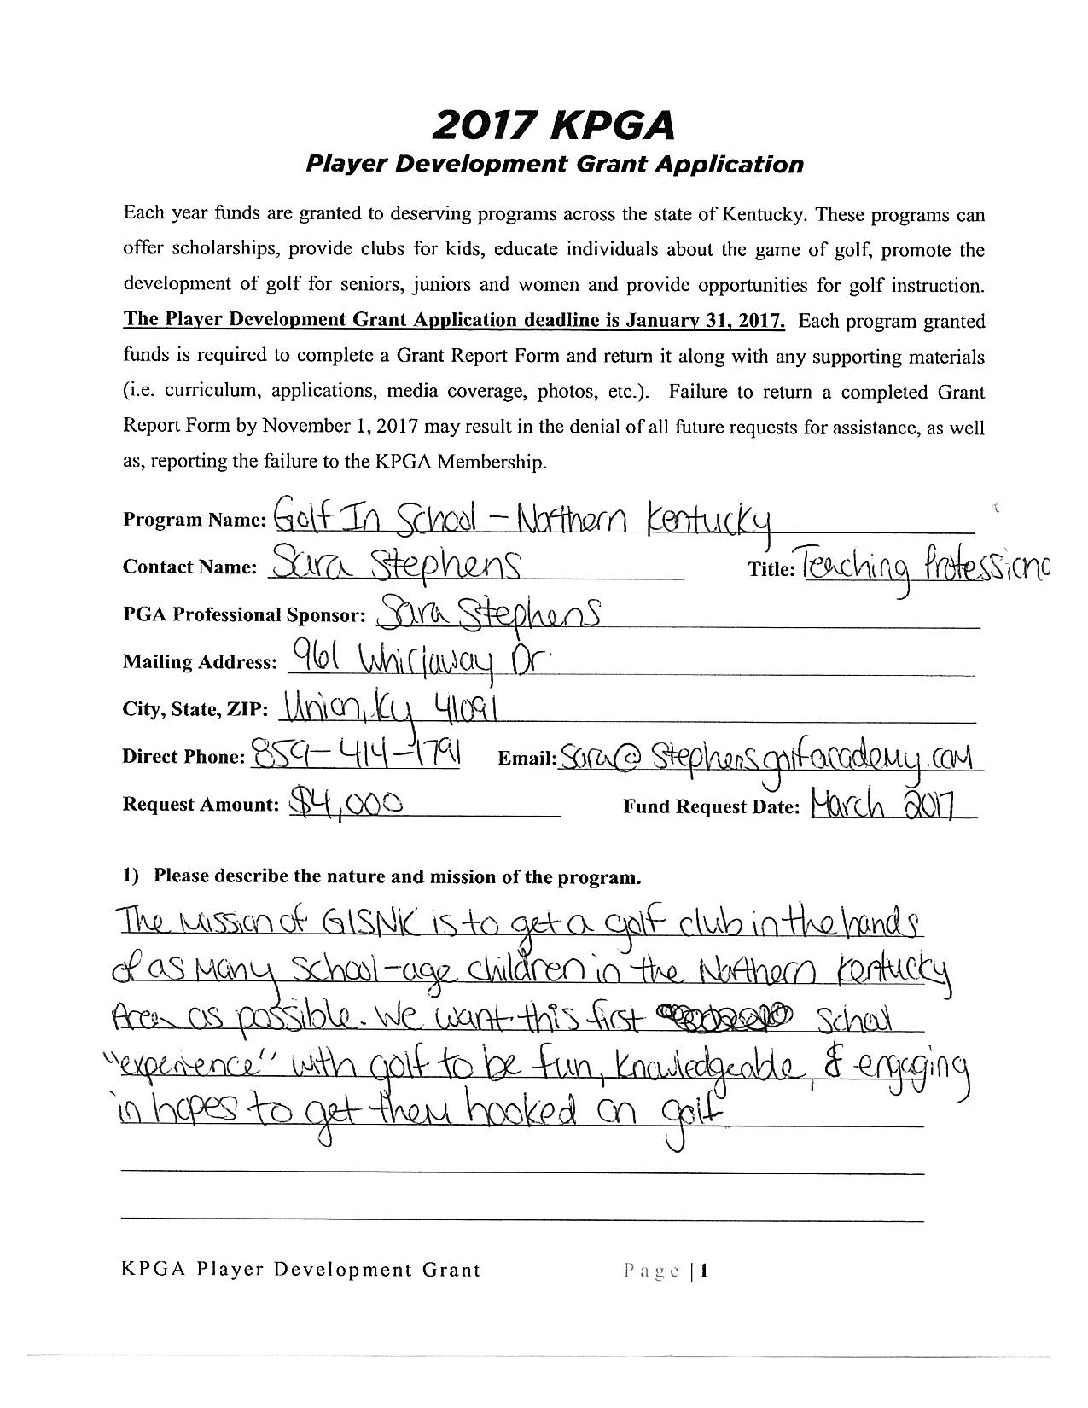 2017 KPGA
Player Development Grant Application
Each year funds are granted to deserving programs across the state of Kentucky. These programs can
offer scholarships, provide clubs for kids, educate individuals about the game of golf, promote the
development of golf for seniors, juniors and women and provide opportunities for golf instruction.
The Player Development Grant Application deadline is January 31, 2017. Each program granted
funds is required to complete a Grant Report Form and return it along with any supporting materials
(i.e. curriculum, applications, media coverage, photos, etc.). Failure to return a completed Grant
Report Form by November 1, 2017 may result in the denial of all future requests for assistance, as well
as, reporting the failure to the KPGA Membership.
Program Name: Golf In School - Northern Kentucky
Contact Name: Sara Stephens Title: Teaching Professiona
PGA Professional Sponsor: Sara Stephens
Mailing Address: 961 Whirlaway Dr.
City, State, ZIP: Union, Ky 41091
Direct Phone: 859-414-1791 Email: Sara@Stephensgolfacademy.com
Request Amount: $4,000 Fund Request Date: March 2017
1) Please describe the nature and mission of the program.
The Mission of GISNK is to get a golf club in the hands
of as Many School-age children in the Northern Kentucky
Area as possible. We want this first School
"experience" with golf to be fun, knowledgeable, & engaging
in hopes to get them hooked on golf
KPGA Player Development Grant Page | 1